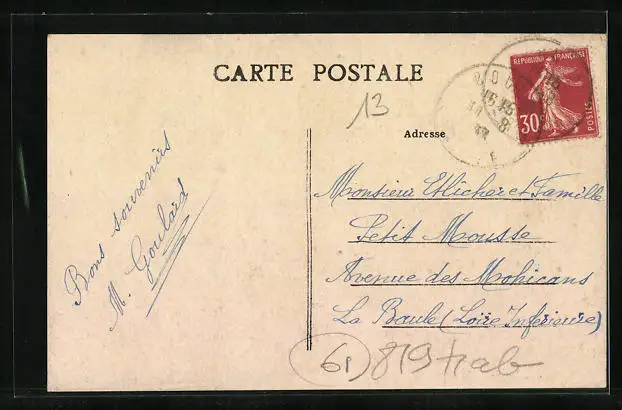 CARTE POSTALE
REPUBLIQUE FRANÇAISE
30c
POSTES
13
Adresse
Bons souvenirs
M. Goulard
Monsieur et Famille
Petit Mousse
Avenue des Mohicans
La Baule (Loire Inférieure)
819